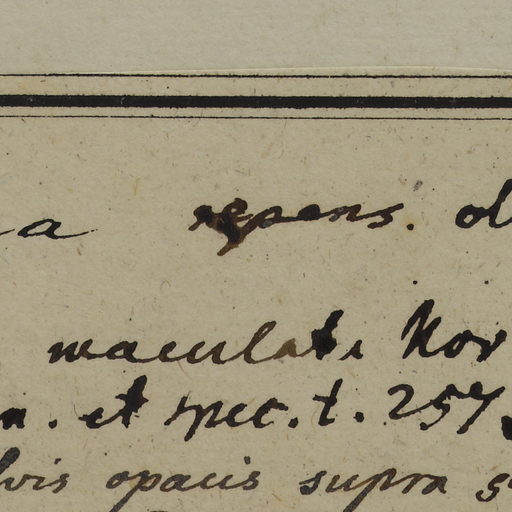 a repens. ol
maculata Hor
n. et spec. t. 257
lvis opacis supra s